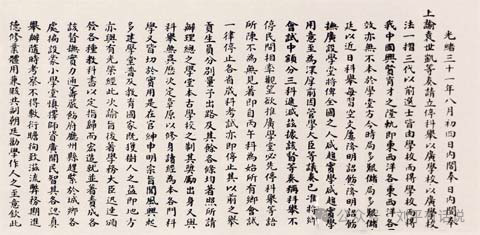 光緒三十一年八月初四日內閣奉日內閣奉
上諭袁世凱等奏請立停科舉以廣學校以廣學校
法一摺三代以前選士皆由學校而得學校而得
我中國興賢育才之隆軌即東西洋各東西洋各
效亦無不本於學堂方今時局多艱儲局多艱儲
廷以近日科舉每習空文屢降明詔飭屢降明詔飭
撫廣設學堂將俾全國之人咸趨實學咸趨實學
用意至為深厚前因管學大臣等議奏已准將鄉
會試中額分三科遞減茲據該督等奏稱科舉不
停民間相率觀望欲推廣學堂必先停科舉等語
所陳不為無見著即自丙午科為始所有鄉會試
一律停止各省歲科考試亦即停止其以前之舉
貢生員分別量予出路及其餘各條均著照所請
辦理總之學堂本古學校之制其獎勵出身又與
科舉無異歷次定章原以修身讀經為本各門科
學又皆切於實用是在官紳申明宗旨聞風興起
多建學堂普及教育國家既獲樹人之益即地方
亦與有光榮經此次諭旨後著學務大臣迅速頒
發各種教科書以定指歸而宏造就並著責成各
該督撫實力通籌嚴飭府廳州縣趕緊於鄉城各
處徧設蒙小學堂慎擇師資廣開民智其各認真
舉辦隨時考察不得敷衍瞻徇致滋流弊務期進
德修業體用兼賅共副朝廷勸學作人之至意欽此
公众号